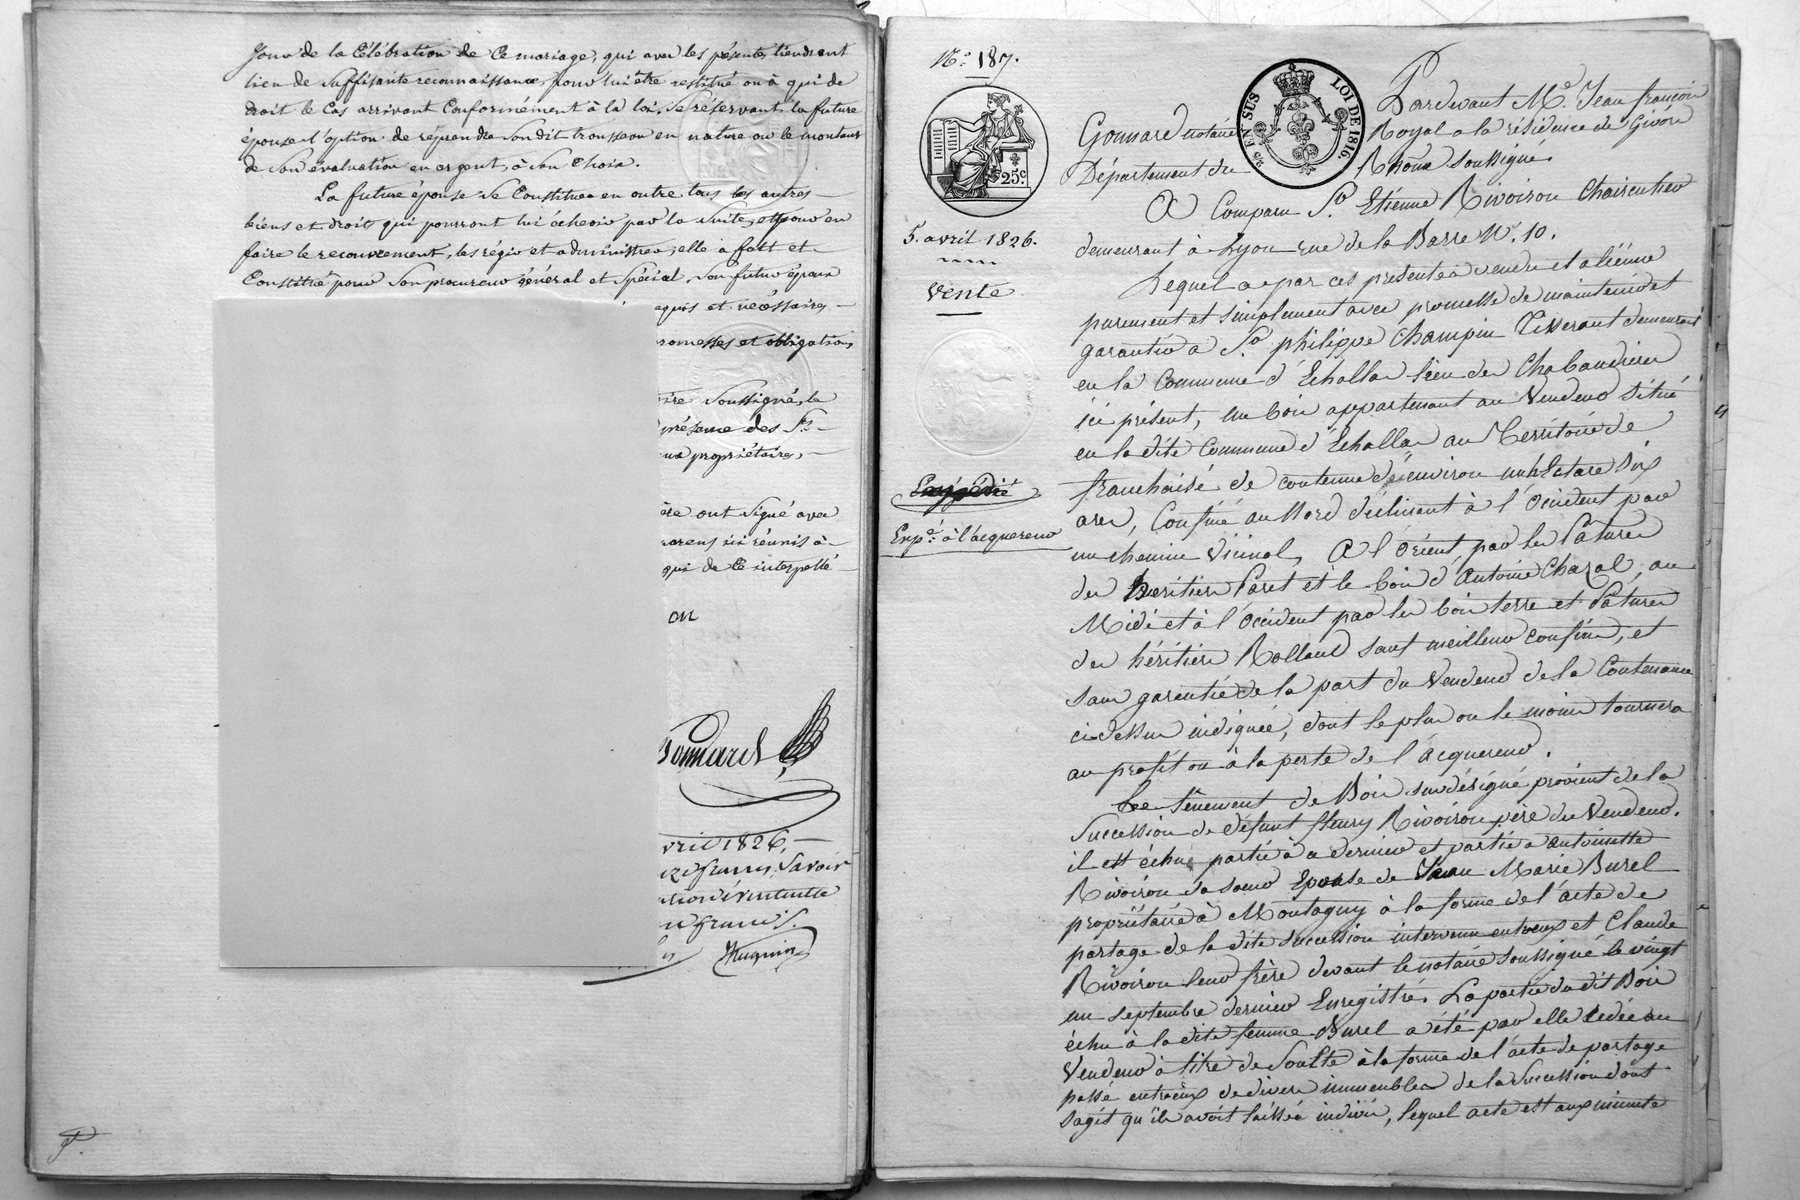 Jour de la Célébration de Ce mariage, qui avec les présentes tiendront
lieu de Suffisante reconnaissance, pour lui être restitué ou à qui de
droit le Cas arrivant Conformément à la loi. Se réservant la future
épouse l'option de réprendre Son dit trousseau en nature ou le montant
de Son évaluation en argent, à Son Choix.
La future épouse Se Constitue en outre tous les autres
biens et droits qui pourront lui échevir par la Suite, et pour en
faire le recouvrement, les régir et administrer, elle a fait et
Constitué pour Son procureur général et Spécial, Son futur époux
equis et nécéssaires
romesses et obligations
ire Soussigné, le
présence des Srs
propriétaires,
ère ont Signé avec
arens ici réunis à
qui de Ce interpellé
on
Gonnard
vril 1826,
francs, Savoir
francs.
Huguin
No. 187.
25c.
EN SUS
LOI DE 1816.
5. avril 1826.
Vente
Expédié
Expé. à l'acquereur
Pardevant Me. Jean françois
Gonnard notaire Royal a la résidence de Givors
Département du Rhône soussigné
A Comparu Sr. Etienne Rivoiron Chaircutier
demeurant à Lyon rue de la Barre No. 10.
Lequel a par ces presentes vendu et aliéné
purement et simplement avec promesse de maintenir et
garantir a Sr. philippe Champin Tisserant demeurant
en la Commune d'Echallas lieu des Chabaudières
ici présent, un bois appartenant au Vendeur Situé
en la dite Commune d'Echallas au Territoire de
franchaise de contenue d'environ un hEctare Six
ares, Confiné au Nord déclinant à l'Occident par
un chemin Vicinal, A l'Orient, par les Patures
des heritiers Paret et le bois d'Antoine Chazal, au
Midi et à l'Occident par les bois terre et Patures
des héritiers Rolland sauf meilleurs confins, et
sans garantie de la part du Vendeur de la Contenance
ci-dessus indiquée, dont le plus ou le moins tournera
au profit ou à la perte de l'acquereur.
Le Tènement de Bois susdésigné provient de la
Succession de défunt fleury Rivoiron père du Vendeur.
il est échu partie à ce dernier et partie a antoinette
Rivoiron sa soeur Epouse de Jean Marie Burel
propriétaire à Montagny à la forme de l'acte de
partage de la dite succession intervenu entreux et Claude
Rivoiron leur frère devant le notaire soussigné le vingt
un septembre dernier Enregistré. La partie du dit Bois
échu à la dite femme Burel a été par elle cédée au
Vendeur à titre de Soulte à la forme de l'acte de partage
passé entr'eux de divers immeubles de la Succession dont
sagit qu'ils avoit laissés indivis, lequel acte est aux minutes